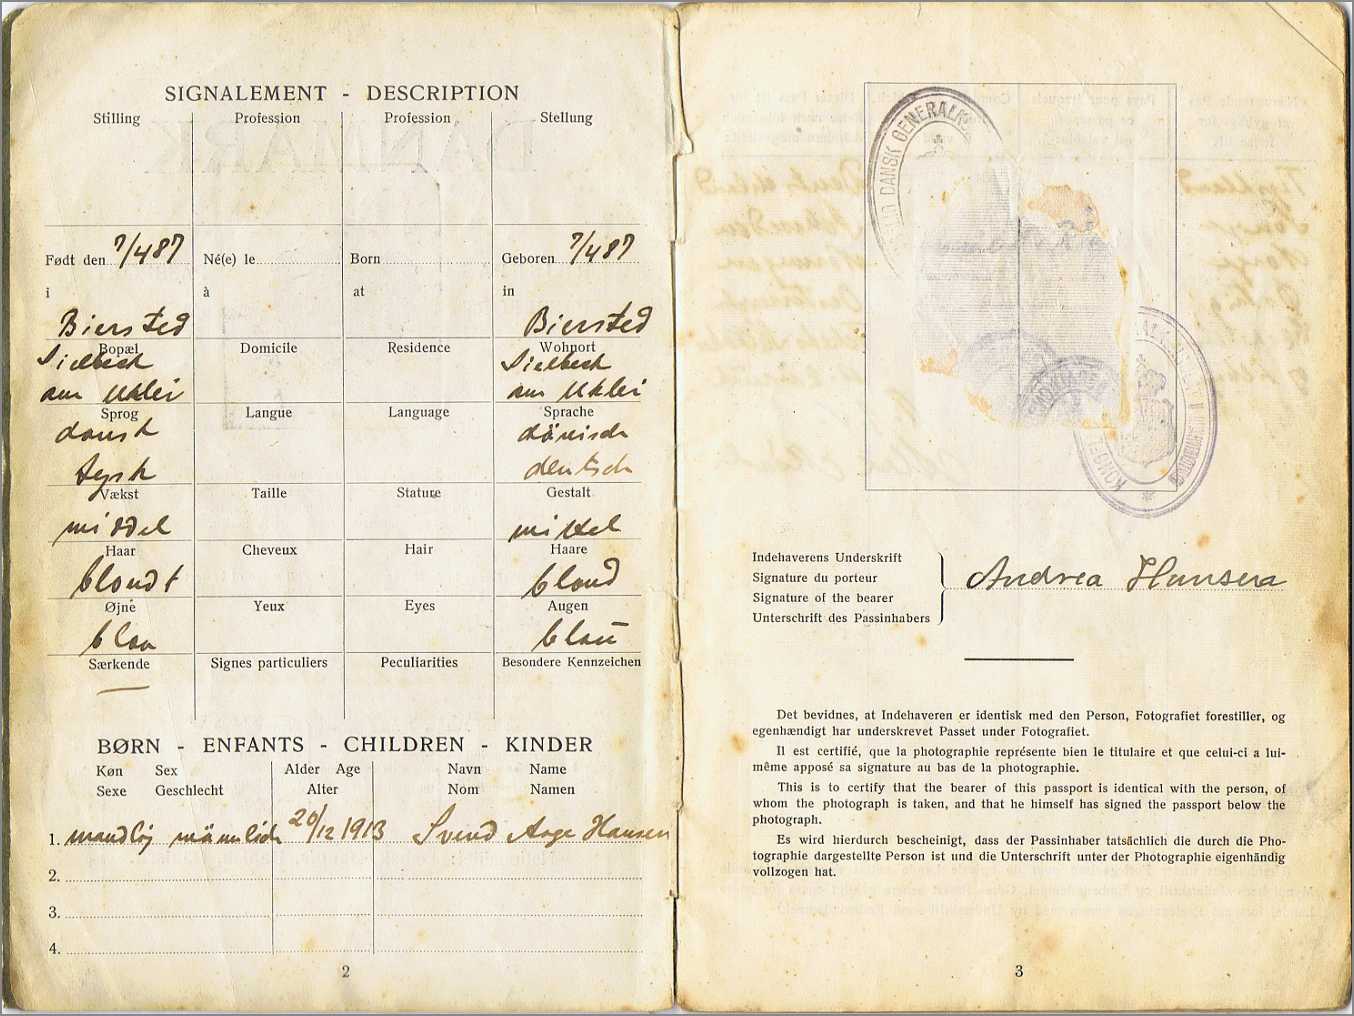 SIGNALEMENT - DESCRIPTION
Stilling Profession Profession Stellung
Født den 7/4 87 Né(e) le Born Geboren 7/4 87
i à at in
Biersted Biersted
Bopæl Domicile Residence Wohnort
Sielbeck Sielbeck
am Uklei am Uklei
Sprog Langue Language Sprache
dansk dänisch
tysk deutsch
Vækst Taille Stature Gestalt
middel mittel
Haar Cheveux Hair Haare
blondt blond
Øjne Yeux Eyes Augen
blaa blau
Særkende Signes particuliers Peculiarities Besondere Kennzeichen
—
BØRN - ENFANTS - CHILDREN - KINDER
Køn Sex Alder Age Navn Name
Sexe Geschlecht Alter Nom Namen
1. mandlig männlich 20/12 1913 Svend Aage Hansen
2.
3.
4.
2
DANSK GENERALK
Indehaverens Underskrift
Signature du porteur
Signature of the bearer
Unterschrift des Passinhabers
Andrea Hansen
Det bevidnes, at Indehaveren er identisk med den Person, Fotografiet forestiller, og
egenhændigt har underskrevet Passet under Fotografiet.
Il est certifié, que la photographie représente bien le titulaire et que celui-ci a lui-
même apposé sa signature au bas de la photographie.
This is to certify that the bearer of this passport is identical with the person, of
whom the photograph is taken, and that he himself has signed the passport below the
photograph.
Es wird hierdurch bescheinigt, dass der Passinhaber tatsächlich die durch die Pho-
tographie dargestellte Person ist und die Unterschrift unter der Photographie eigenhändig
vollzogen hat.
3